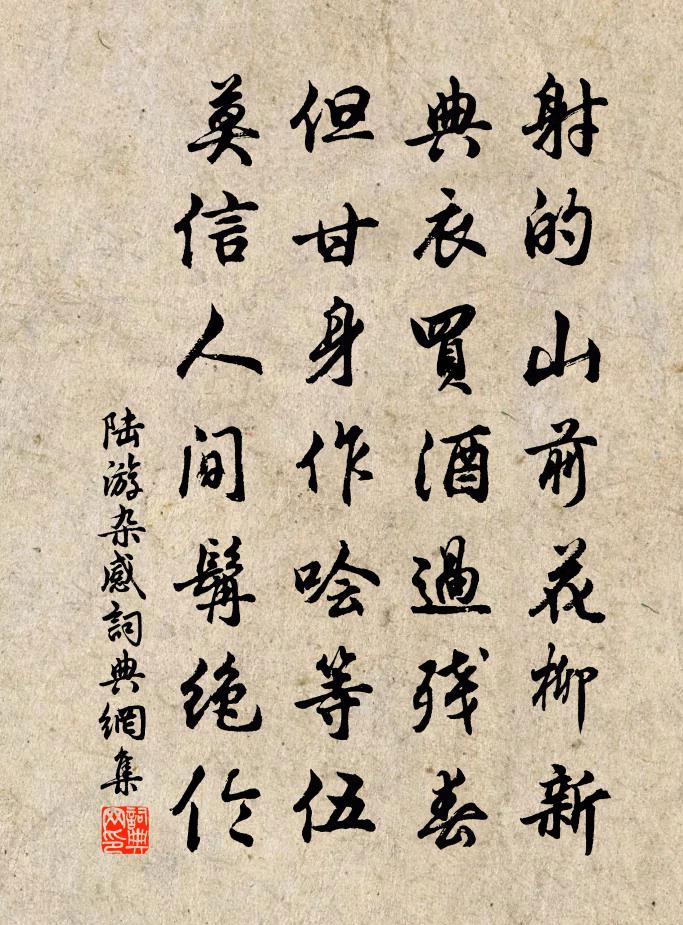 射的山前花柳新
典衣買酒過残春
但甘身作哙等伍
莫信人間髯绝伦
陆游杂感詞典網集
詞典网印